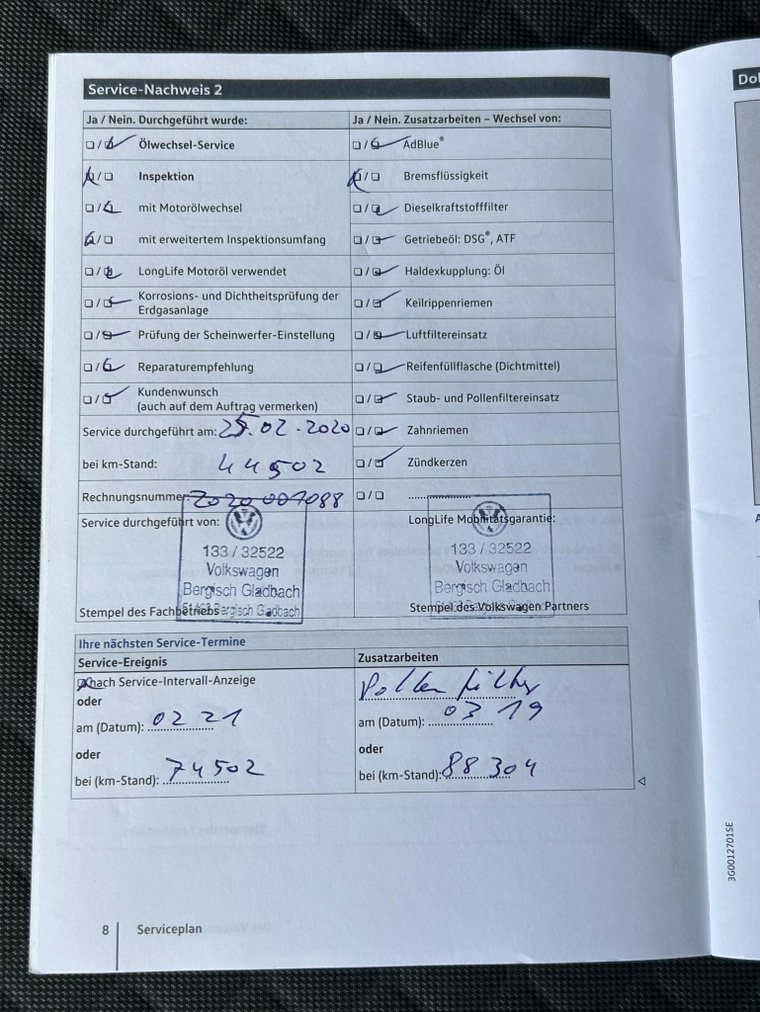 Service-Nachweis 2
Ja / Nein. Durchgeführt wurde: Ja / Nein. Zusatzarbeiten – Wechsel von:
Ölwechsel-Service AdBlue®
Inspektion Bremsflüssigkeit
mit Motorölwechsel Dieselkraftstofffilter
mit erweitertem Inspektionsumfang Getriebeöl: DSG®, ATF
LongLife Motoröl verwendet Haldexkupplung: Öl
Korrosions- und Dichtheitsprüfung der Erdgasanlage Keilrippenriemen
Prüfung der Scheinwerfer-Einstellung Luftfiltereinsatz
Reparaturempfehlung Reifenfüllflasche (Dichtmittel)
Kundenwunsch
(auch auf dem Auftrag vermerken) Staub- und Pollenfiltereinsatz
Service durchgeführt am: 25.02.2020 Zahnriemen
bei km-Stand: 44502 Zündkerzen
Rechnungsnummer: 2020 001088
Service durchgeführt von: LongLife Mobilitätsgarantie:
133 / 32522 133 / 32522
Volkswagen Volkswagen
Bergisch Gladbach Bergisch Gladbach
Stempel des Fachbetriebs Bergisch Gladbach Stempel des Volkswagen Partners
Ihre nächsten Service-Termine
Service-Ereignis Zusatzarbeiten
nach Service-Intervall-Anzeige Pollenfilter
oder
am (Datum): 02 21 am (Datum): 03 19
oder oder
bei (km-Stand): 74502 bei (km-Stand): 88 304
3G0012701SE
8 Serviceplan